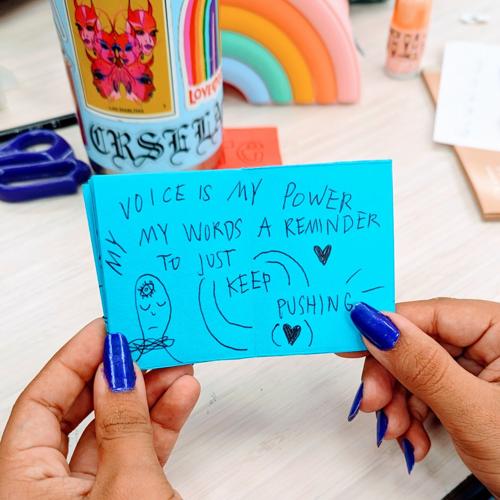 LOVE
CRSELA
MY VOICE IS MY POWER
MY WORDS A REMINDER
TO JUST
KEEP
PUSHING